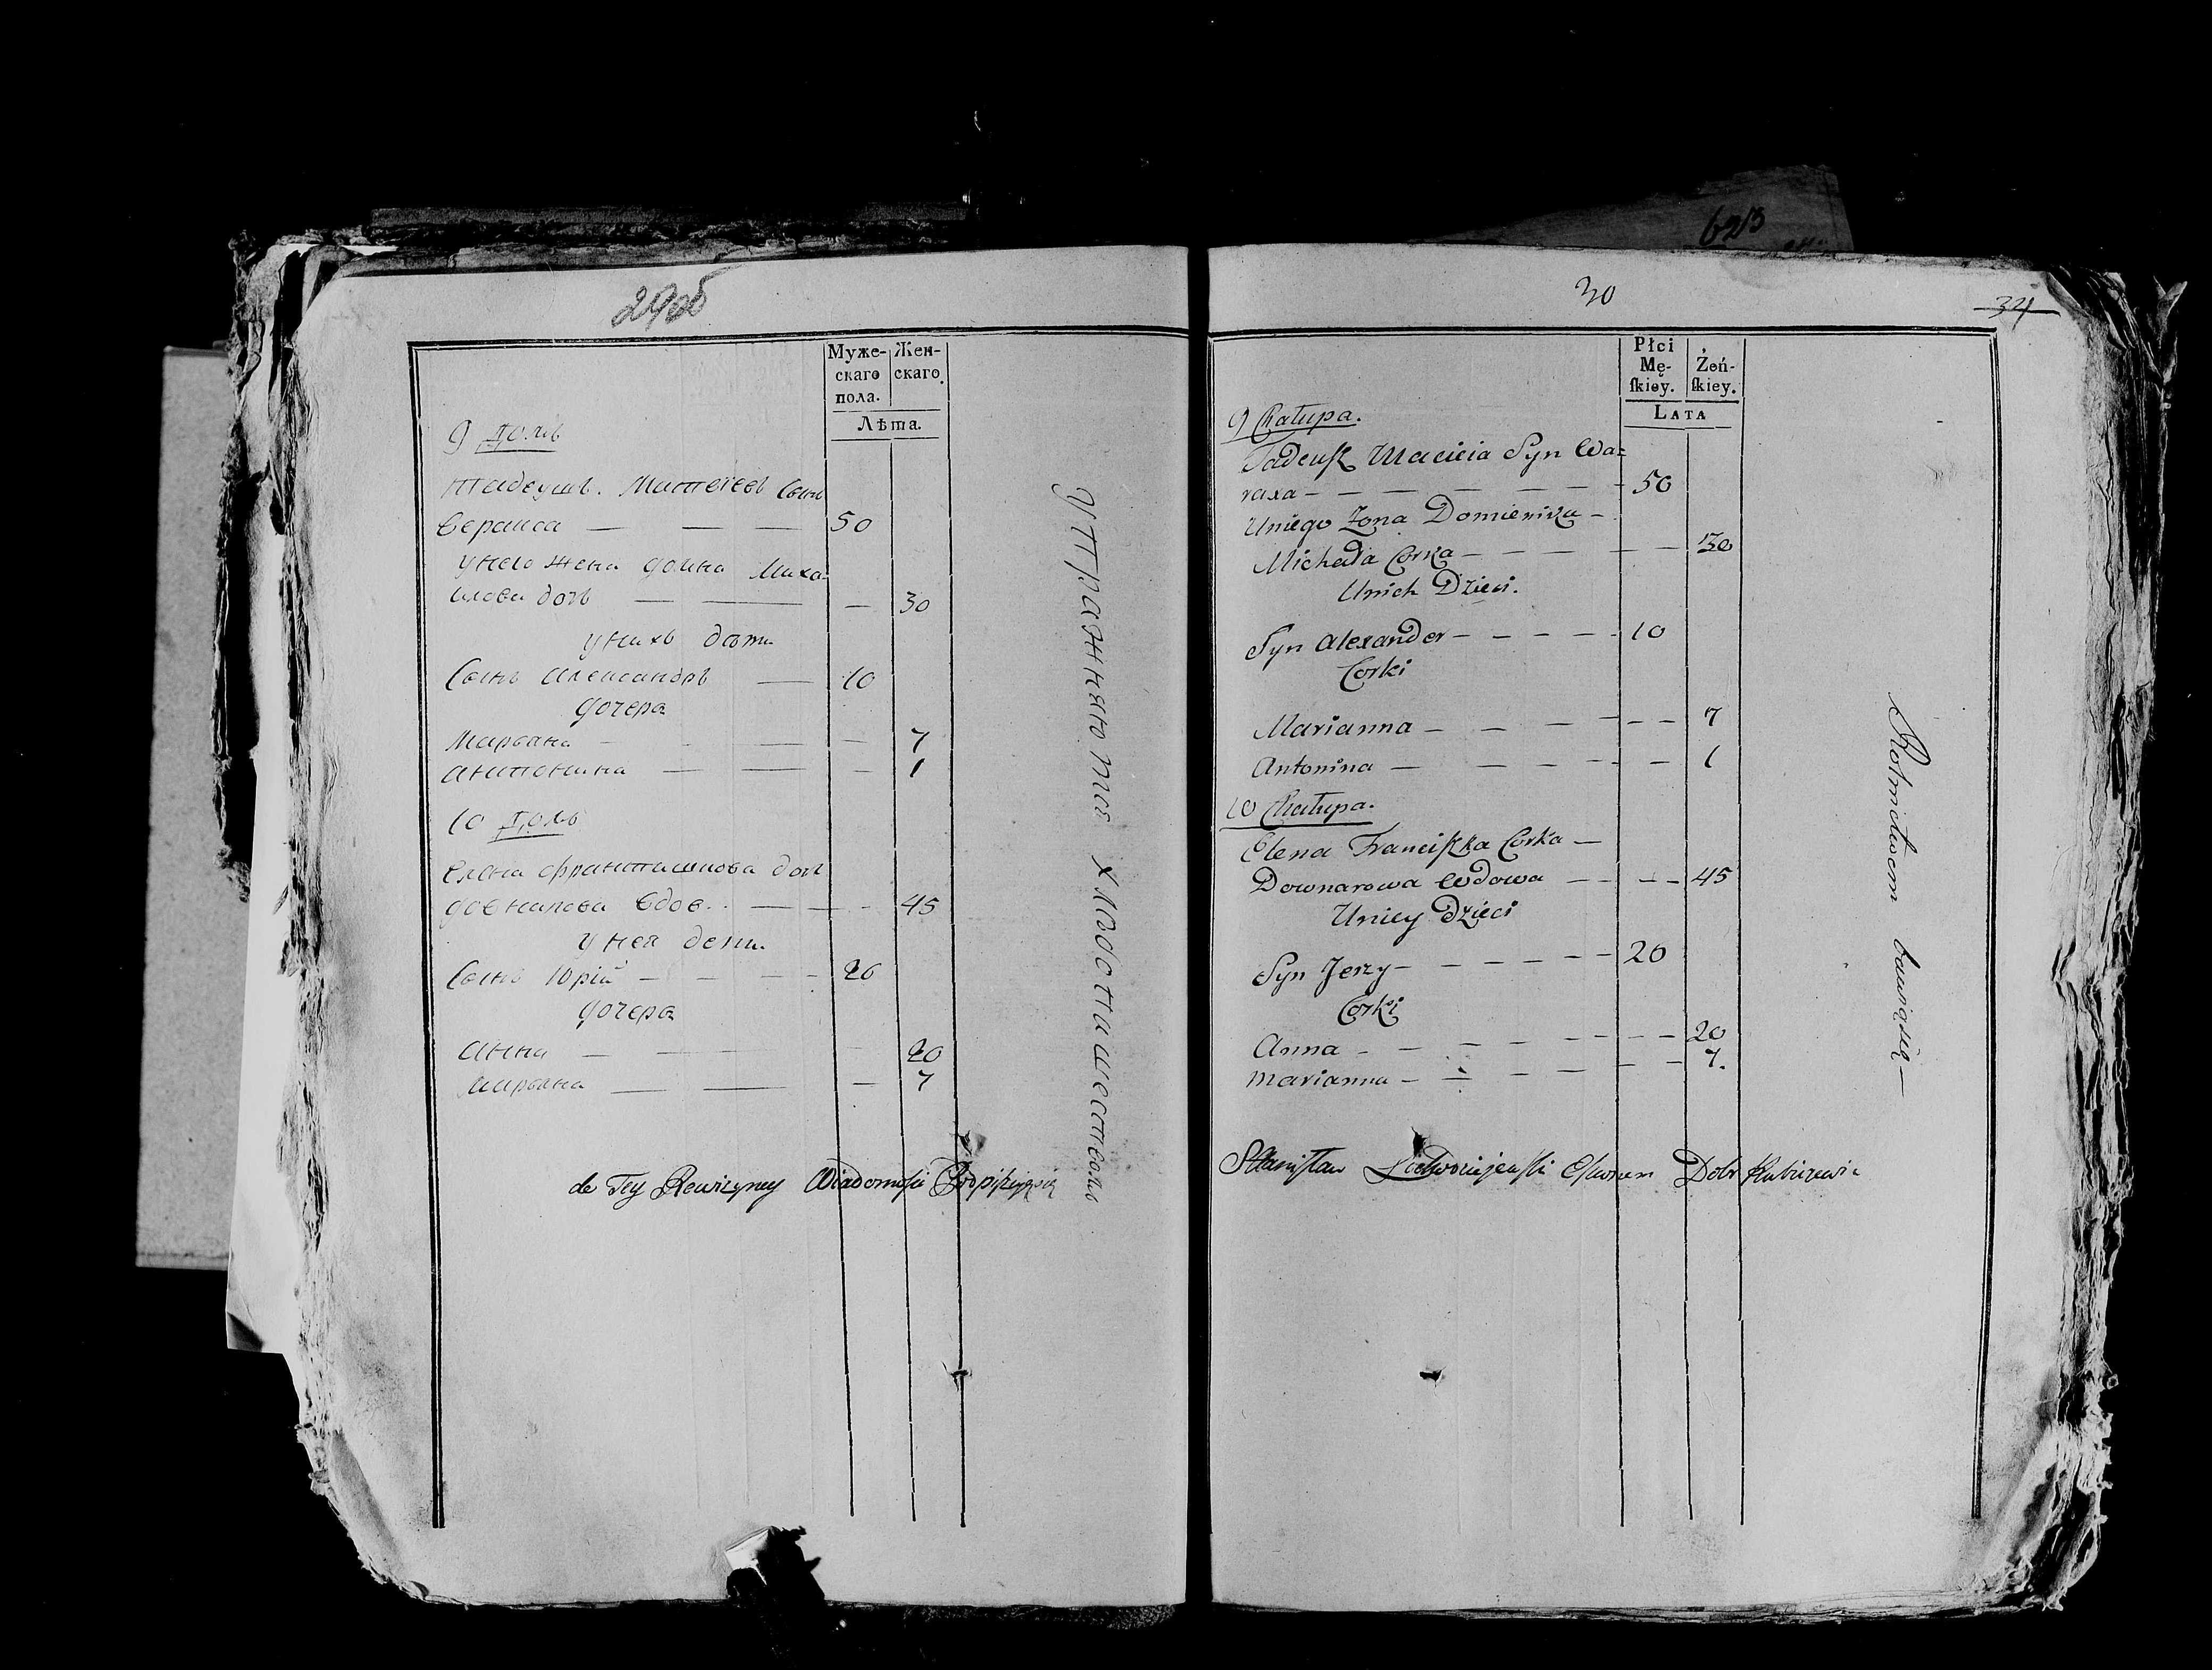 623
29об
Муже-
скаго
пола.
Жен-
скаго.
Лѣта.
9 домъ
Тадеушъ Матвеевъ сынъ
50
унего жена Домна Миха-
илова дочь — — — 30
унихъ дѣти
Сынъ Александръ — 10
дочера
Марьяна — — — 7
Антонина — — — 1
10 домъ
Елена Францишкова дочь
45
унея дети
Сынъ Юрій — — — 20
дочера
Анна — — — 20
Марьяна — — — 7
упражняются хлѣбопашествомъ
de Tey Rewizyney Wiadomości Podpisuię się
30
34
Płci
Mę-
ſkiey.
Żeń-
ſkiey.
LATA
9 Chałupa.
Tadeusz Macieia Syn Wa=
raxa — — — 50
Uniego Żona Domicnika —
Michała Corka — — — 30
Unich Dzieci.
Syn Alexander — — — 10
Corki
Marianna — — — 7
Antonina — — — 1
10 Chałupa.
Elena Franciszka Corka —
Downarowa Wdowa — — — 45
Uniey Dzieci
Syn Jerzy — — — 20
Corki
Anna — — — 20
Marianna — — — 7.
Rolnictwem bawią się —
Stanisław